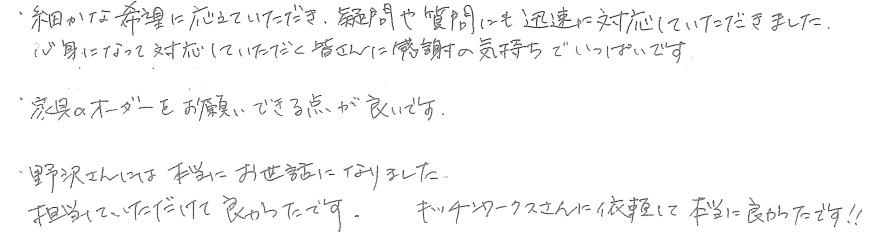 ・細かな希望に応えていただき、疑問や質問にも迅速に対応していただきました.
心身になって対応していただく皆さんに感謝の気持ちでいっぱいです
・家具のオーダーをお願いできる点が良いです.
・野沢さんには本当にお世話になりました.
担当していただけて良かったです。 キッチンワークスさんに依頼して本当に良かったです!!